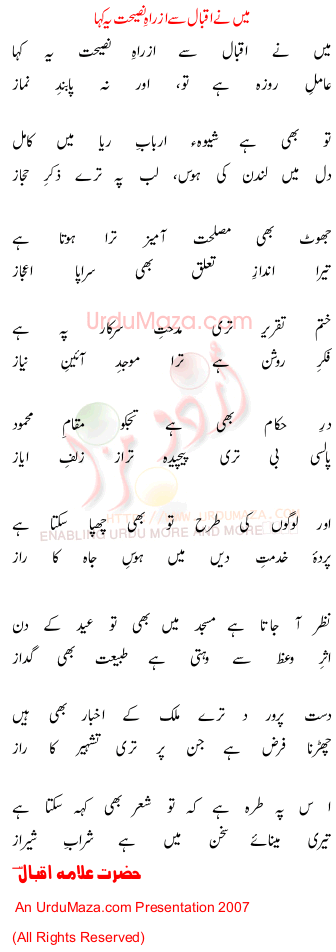 میں نے اقبال سے ازراہِ نصیحت یہ کہا
میں نے اقبال سے ازراہِ نصیحت یہ کہا
عاملِ روزہ ہے تو، اور نہ پابندِ نماز
تو بھی ہے شیوہء اربابِ ریا میں کامل
دل میں لندن کی ہوس، لب پہ ترے ذکرِ حجاز
جھوٹ بھی مصلحت آمیز ترا ہوتا ہے
تیرا اندازِ تعلق بھی سراپا اعجاز
ختم تقریر تری مدحتِ سرکار پہ ہے
فکرِ روشن ہے ترا موجدِ آئینِ نیاز
درِ حکام بھی ہے تجکو مقامِ محمود
پالسی بی تری پیچیدہ تراز زلفِ ایاز
اور لوگوں کی طرح تو بھی چھپا سکتا ہے
پردۂ خدمتِ دیں میں ہوسِ جاہ کا راز
نظر آ جاتا ہے مسجد میں بھی تو عید کے دن
اثرِ وعظ سے وہتی ہے طبیعت بھی گداز
دست پرور د ترے ملک کے اخبار بھی ہیں
چھڑنا فرض ہے جن پر تری تشہیر کا راز
ا س پہ طرہ ہے کہ تو شعر بھی کہہ سکتا ہے
تیری مینائے سخن میں ہے شراب شیراز
حضرت علامہ اقبال
An UrduMaza.com Presentation 2007
(All Rights Reserved)
UrduMaza.com
اردو مزا
HTTP://WWW.URDUMAZA.COM
ENABLING URDU MORE AND MORE